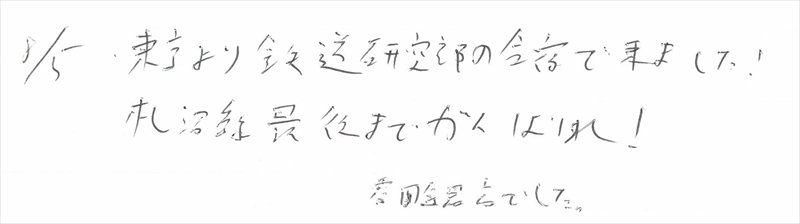 8/5 東京より鉄道研究部の合宿で来ました!
札沼線最後までがんばれ!
でした。